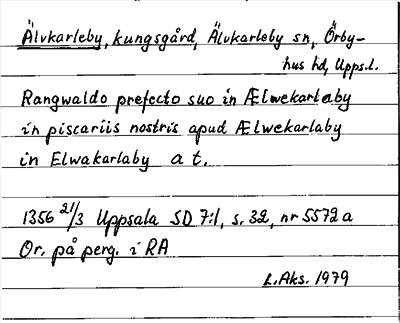 Älvkarleby, kungsgård, Älvkarleby sn, Örby-
hus hd, Upps.l.
Rangwaldo prefecto suo in Ælwekarlaby
in piscariis nostris apud Ælwekarlaby
in Elwakarlaby a t.
1356 21/3 Uppsala SD 7:1, s. 32, nr 5572a
Or. på perg. i RA
L.Aks. 1979